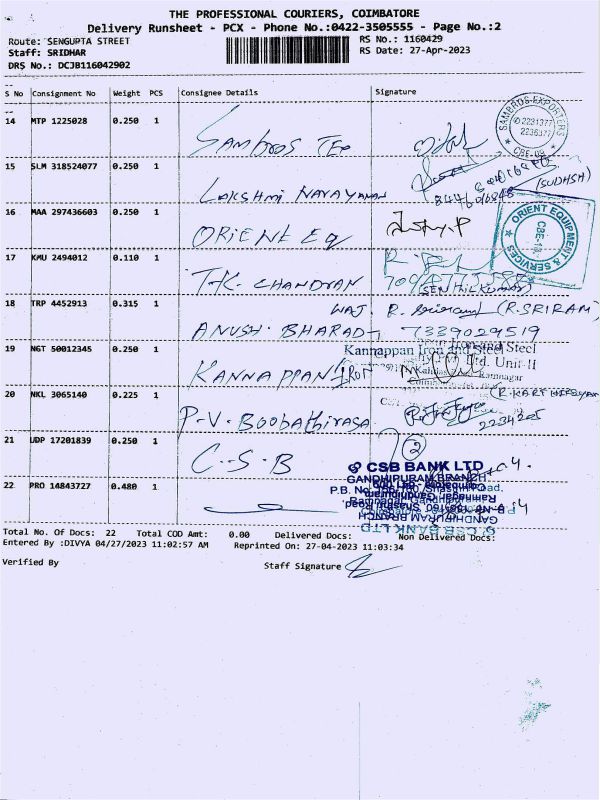 THE PROFESSIONAL COURIERS, COIMBATORE
Delivery Runsheet - PCX - Phone No.:0422-3505555 - Page No.:2
Route: SENGUPTA STREET
RS No.: 1160429
Staff: SRIDHAR
RS Date: 27-Apr-2023
DRS No.: DCJB116042902
S No Consignment No Weight PCS Consignee Details Signature
14 MTP 1225028 0.250 1 SAMBROS TEX
SAMBROS EXPORTERS
2231377
2236377
CBE-09
15 SLM 318524077 0.250 1 LAKSHMI NARAYANAN
(SUDHSH)
16 MAA 297436603 0.250 1 ORIENT EQ
ORIENT EQUIPMENT & SERVICES
17 KMU 2494012 0.110 1 T.K. CHANDRAN
(SENTHILKUMAR)
18 TRP 4452913 0.315 1 ANUSH. BHARADWAJ. R. Sriram (R.SRIRAM)
7339029519
19 NGT 50012345 0.250 1 KANNAPPAN IRON
Kannappan Iron and Steel
Ltd. Unit-II
Ramnagar
20 NKL 3065140 0.225 1 P.V. BOOBATHIRASA
21 UDP 17201839 0.250 1 C.S.B
2
CSB BANK LTD
GANDHIPURAM BRANCH
22 PRO 14843727 0.480 1
Total No. Of Docs: 22 Total COD Amt: 0.00 Delivered Docs: Non Delivered Docs:
Entered By :DIVYA 04/27/2023 11:02:57 AM Reprinted On: 27-04-2023 11:03:34
Verified By
Staff Signature